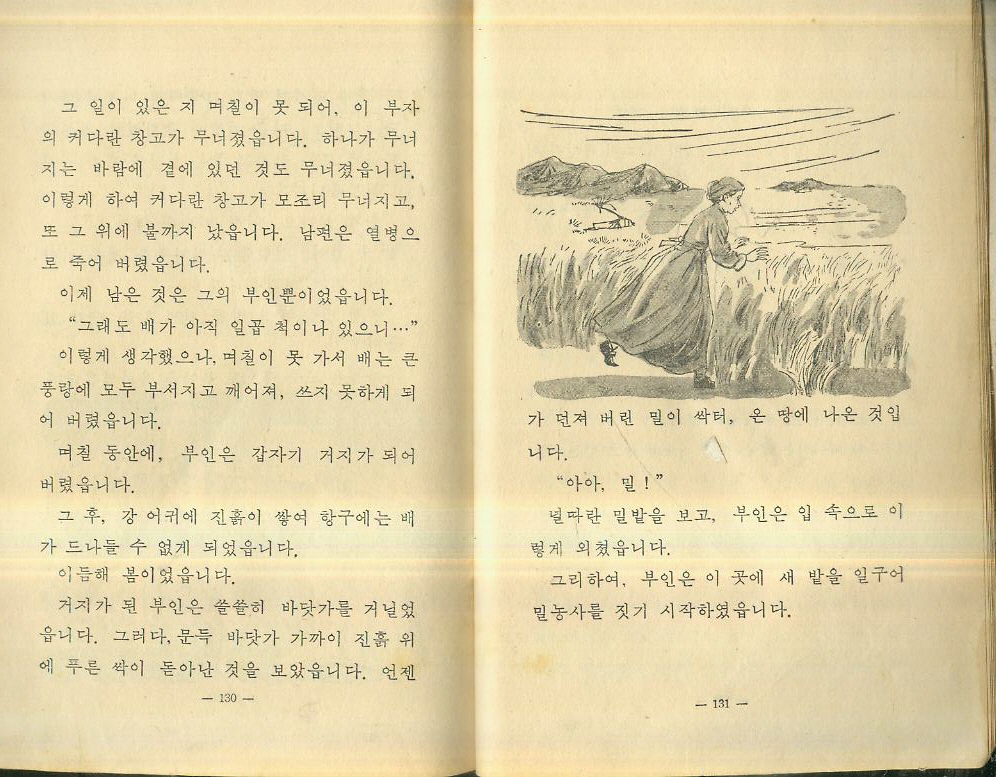 그 일이 있은 지 며칠이 못 되어, 이 부자
의 커다란 창고가 무너졌읍니다. 하나가 무너
지는 바람에 곁에 있던 것도 무너졌읍니다.
이렇게 하여 커다란 창고가 모조리 무너지고,
또 그 위에 불까지 났읍니다. 남편은 열병으
로 죽어 버렸읍니다.
이제 남은 것은 그의 부인뿐이었읍니다.
“그래도 배가 아직 일곱 척이나 있으니…”
이렇게 생각했으나, 며칠이 못 가서 배는 큰
풍랑에 모두 부서지고 깨어져, 쓰지 못하게 되
어 버렸읍니다.
며칠 동안에, 부인은 갑자기 거지가 되어
버렸읍니다.
그 후, 강 어귀에 진흙이 쌓여 항구에는 배
가 드나들 수 없게 되었읍니다.
이듬해 봄이었읍니다.
거지가 된 부인은 쓸쓸히 바닷가를 거닐었
읍니다. 그러다, 문득 바닷가 가까이 진흙 위
에 푸른 싹이 돋아난 것을 보았읍니다. 언젠
— 130 —
가 던져 버린 밀이 싹터, 온 땅에 나온 것입
니다.
“아아, 밀!”
널따란 밀밭을 보고, 부인은 입 속으로 이
렇게 외쳤읍니다.
그리하여, 부인은 이 곳에 새 밭을 일구어
밀농사를 짓기 시작하였읍니다.
— 131 —